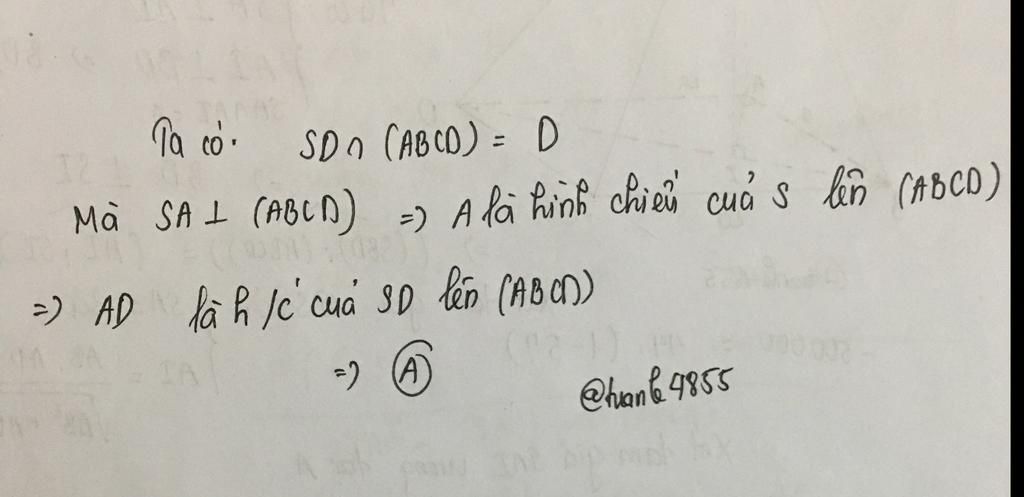 Ta có. SD ∩ (ABCD) = D
Mà SA ⊥ (ABCD) => A là hình chiếu của S lên (ABCD)
=> AD là h/c của SD lên (ABCD)
=> Ⓐ